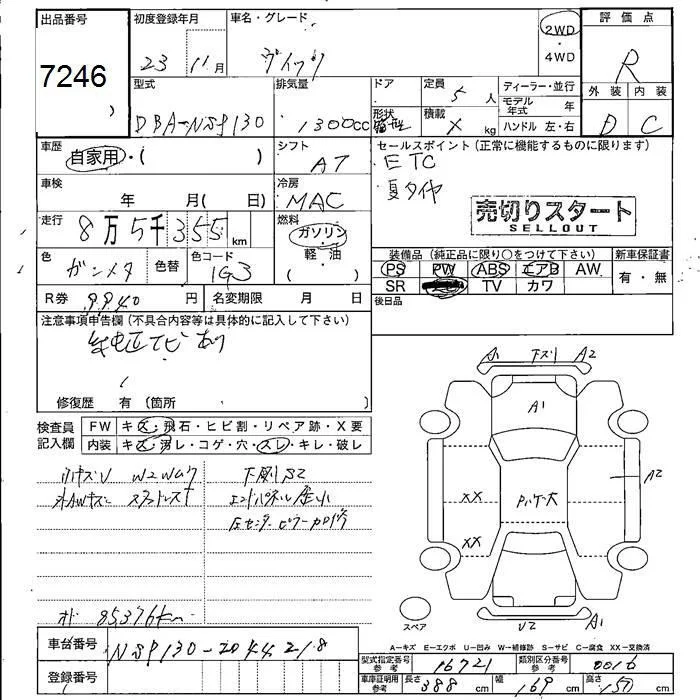 出品番号
7246
)
初度登録年月
23 11月
車名・グレード
ヴィッツ
2WD
・
4WD
評価点
R
外装 内装
D C
型式
DBA-NSP130
排気量
1300cc
ドア
形状
定員 5人
積載 X kg
ディーラー・並行
モデル年式 年
ハンドル 左・右
車歴
自家用・( )
シフト
AT
セールスポイント(正常に機能するものに限ります)
ETC
夏タイヤ
売切りスタート
SELLOUT
車検
年 月( 日)
冷房
MAC
走行
8万5千355km
燃料
ガソリン
軽・油
( )
色
ガンメタ
色替
色コード
1G3
装備品(純正品に限り○をつけて下さい)
PS PW ABS エアB AW
SR TV カワ
新車保証書
有・無
後日品
R券 9940円
名変期限 月 日
注意事項申告欄(不具合内容等は具体的に記入して下さい)
純正ナビあり
修復歴 有(箇所 )
検査員記入欄
FW キズ・飛石・ヒビ割・リペア跡・X要
内装 キズ・汚レ・コゲ・穴・スレ・キレ・破レ
小キズU W2Wウク
下廻S2
A2
A1
A2
XX
XX
U2
A1
スペア
85376km
A-キズ E-エクボ U-凹み W-補修跡 S-サビ C-腐食 XX-交換済
車台番号 NSP130-2044218
登録番号
型式指定番号参考 16721
類別区分番号参考 0016
車庫証明用参考 長さ 388cm 幅 169cm 高さ 150cm